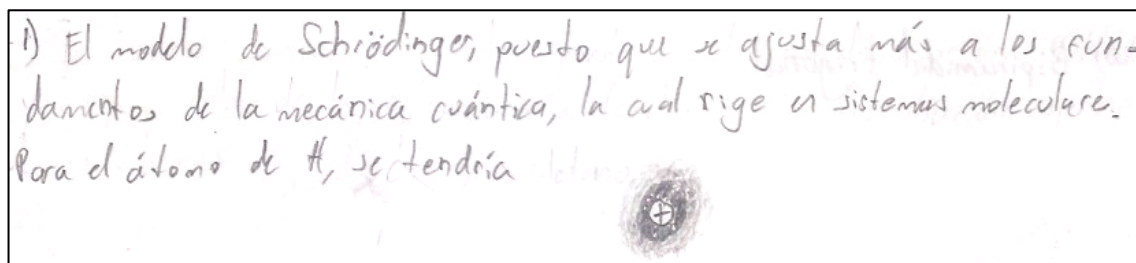 1) El modelo de Schrödinger, puesto que se ajusta más a los fun-
damentos de la mecánica cuántica, la cual rige en sistemas moleculare.
Para el átomo de H, se tendría
+